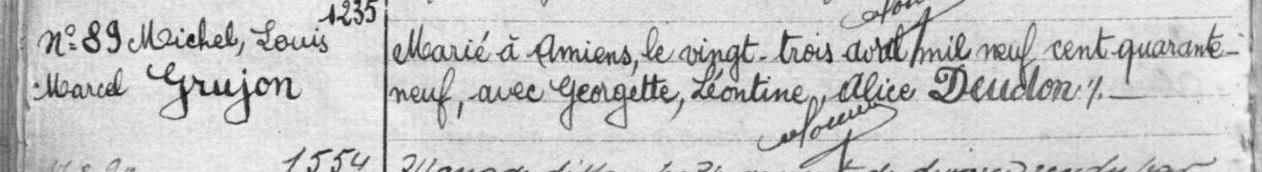 1235
Nº 89 Michel, Louis
Marcel Grujon
Marié à Amiens, le vingt-trois avril mil neuf cent quarante-
neuf, avec Georgette, Léontine, Alice Deudon ./.
1554